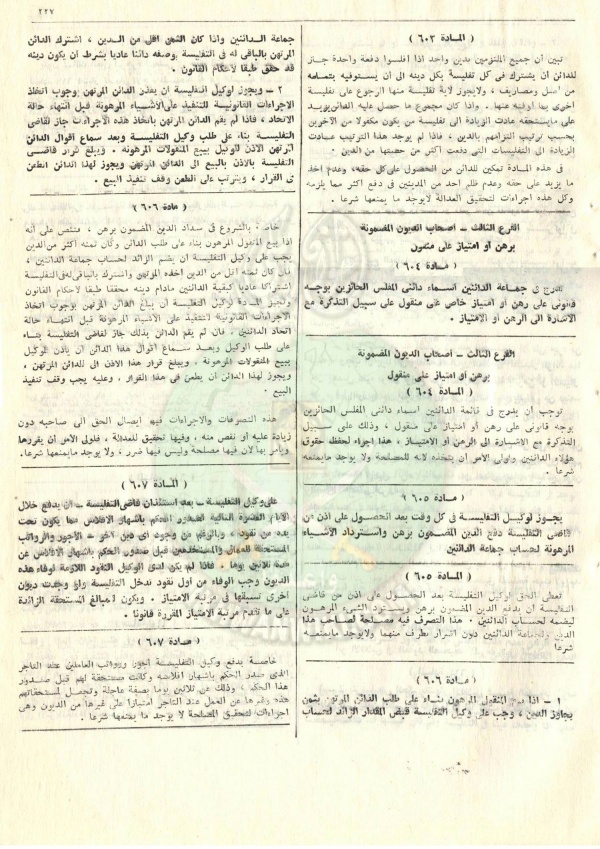 ٢٢٧
( المادة ٦٠٣ )
تبين أن جميع الملتزمين بدين واحد اذا افلسوا دفعة واحدة جاز
للدائن أن يشترك فى كل تفليسة بكل دينه الى أن يستوفيه بتمامه
من أصل ومصاريف ، ولايجوز لاية تفليسة منها الرجوع على تفليسة
اخرى بما اوفته عنها . واذا كان مجموع ما حصل عليه الدائن يزيد
على مايستحقه عادت الزيادة الى تفليسة من يكون مكفولا من الآخرين
بحسب ترتيب التزامهم بالدين ، فاذا لم يوجد هذا الترتيب عادت
الزيادة الى التفليسات التى دفعت اكثر من حصتها من الدين .
فى هذه المادة تمكين للدائن من الحصول على كل حقه، وعدم اخذ
ما يزيد على حقه وعدم ظلم احد من المدينين فى دفع اكثر مما يلزمه
وكل هذه اجراءات لتحقيق العدالة لايوجد ما يمنعها شرعا .
الفرع الثالث – أصحاب الديون المضمونة
برهن أو امتياز على منقول
( مادة ٦٠٤ )
تدرج فى جماعة الدائنين أسماء دائنى المفلس الحائزين بوجه
قانونى على رهن أو امتياز خاص على منقول على سبيل التذكرة مع
الاشارة الى الرهن أو الامتياز .
الفرع الثالث – أصحاب الديون المضمونة
برهن أو امتياز على منقول
( المادة ٦٠٤ )
توجب أن يدرج فى قائمة الدائنين اسماء دائنى المفلس الحائزين
بوجه قانونى على رهن أو امتياز على منقول ، وذلك على سبيل
التذكرة مع الاشارة الى الرهن أو الامتياز ، هذا اجراء لحفظ حقوق
هؤلاء الدائنين ولولى الأمر ان يتخذه لانه للمصلحة ولا يوجد مايمنعه
شرعا .
( مادة ٦٠٥ )
يجوز لوكيل التفليسة فى كل وقت بعد الحصول على اذن من
قاضى التفليسة دفع الدين المضمون برهن واسترداد الأشياء
المرهونة لحساب جماعة الدائنين
( المادة ٦٠٥ )
تعطى الحق لوكيل التفليسة بعد الحصول على اذن من قاضى
التفليسة أن يدفع الدين المضمون برهن ويسترد الشىء المرهون
ليضمه لحساب الدائنين . هذا التصرف فيه مصلحة لصاحب هذا
الدين ولجماعة الدائنين دون اضرار بطرف منهما ولايوجد مايمنعه
شرعا
( مادة ٦٠٦ )
١ – اذا بيع المنقول المرهون بناء على طلب الدائن المرتهن بثمن
يجاوز الدين ، وجب على وكيل التفليسة قبض المقدار الزائد لحساب
جماعة الدائنين واذا كان الثمن اقل من الدين ، اشترك الدائن
المرتهن بالباقى له فى التفليسة بوصفه دائنا عاديا بشرط ان يكون دينه
قد حقق طبقا لاحكام القانون .
٢ – ويجوز لوكيل التفليسة ان يعذر الدائن المرتهن بوجوب اتخاذ
الاجراءات القانونية للتنفيذ على الأشياء المرهونة قبل انتهاء حالة
الاتحاد ، فاذا لم يقم الدائن المرتهن باتخاذ هذه الاجراءات جاز لقاضى
التفليسة بناء على طلب وكيل التفليسة وبعد سماع أقوال الدائن
المرتهن الاذن للوكيل ببيع المنقولات المرهونة . ويبلغ قرار قاضى
التفليسة بالاذن بالبيع الى الدائن المرتهن ويجوز لهذا الدائن الطعن
فى القرار ، ويترتب على الطعن وقف تنفيذ البيع .
( مادة ٦٠٦ )
خاصة بالشروع فى سداد الدين المضمون برهن ، فتنص على أنه
اذا بيع المنقول المرهون بناء على طلب الدائن وكان ثمنه أكثر من الدين
يجب على وكيل التفليسة أن يضم الزائد لحساب جماعة الدائنين ،
فان كان ثمنه أقل من الدين أخذه المرتهن واشترك بالباقى له فى التفليسة
اشتراكا عاديا كبقية الدائنين مادام دينه محققا طبقا لاحكام القانون
وتجيز المادة لوكيل التفليسة أن يبلغ الدائن المرتهن بوجوب اتخاذ
الاجراءات القانونية للتنفيذ على الأشياء المرهونة قبل انتهاء حالة
اتحاد الدائنين ، فان لم يقم الدائن بذلك جاز لقاضى التفليسة بناء
على طلب الوكيل وبعد سماع أقوال هذا الدائن أن يأذن للوكيل
ببيع المنقولات المرهونة ، ويبلغ قرار هذا الاذن الى للدائن المرتهن .
ويجوز لهذا الدائن أن يطعن فى هذا القرار . وعليه يجب وقف تنفيذ
البيع .
هذه التصرفات والاجراءات فيها ايصال الحق الى صاحبه دون
زيادة عليه أو نقص منه ، وفيها تحقيق للعدالة ، فلولى الأمر أن يقررها
ويأمر بها لأن فيها مصلحة وليس فيها ضرر ، ولا يوجد مايمنعها شرعا .
( المادة ٦٠٧ )
على وكيل التفليسة – بعد استئذان قاضى التفليسة – ان يدفع خلال
الايام العشرة التالية لصدور الحكم باشهار الافلاس مما يكون تحت
يده من نقود ، وبالرغم من وجود أى دين آخر – الأجور والرواتب
المستحقة للعمال والمستخدمين قبل صدور الحكم باشهار الافلاس عن
مدة ثلاثين يوما . فاذا لم يكن لدى الوكيل النقود اللازمة لوفاء هذه
الديون وجب الوفاء من أول نقود تدخل التفليسة ولو وجدت ديون
أخرى تسبقها فى مرتبة الامتياز . ويكون للمبالغ المستحقة الزائدة
على ما تقدم مرتبة الامتياز المقررة قانونا .
( مادة ٦٠٧ )
خاصة بدفع وكيل التفليسة أجور ورواتب العاملين عند التاجر
الذى صدر الحكم باشهار افلاسه وكانت مستحقة لهم قبل صدور
هذا الحكم ، وذلك عن ثلاثين يوما بصفة عاجلة وتجعل لمستحقاتهم
هذه وغيرها عن العمل عند التاجر امتيازا على غيرها من الديون وهى
اجراءات لتحقيق المصلحة لا يوجد ما يمنعها شرعا .